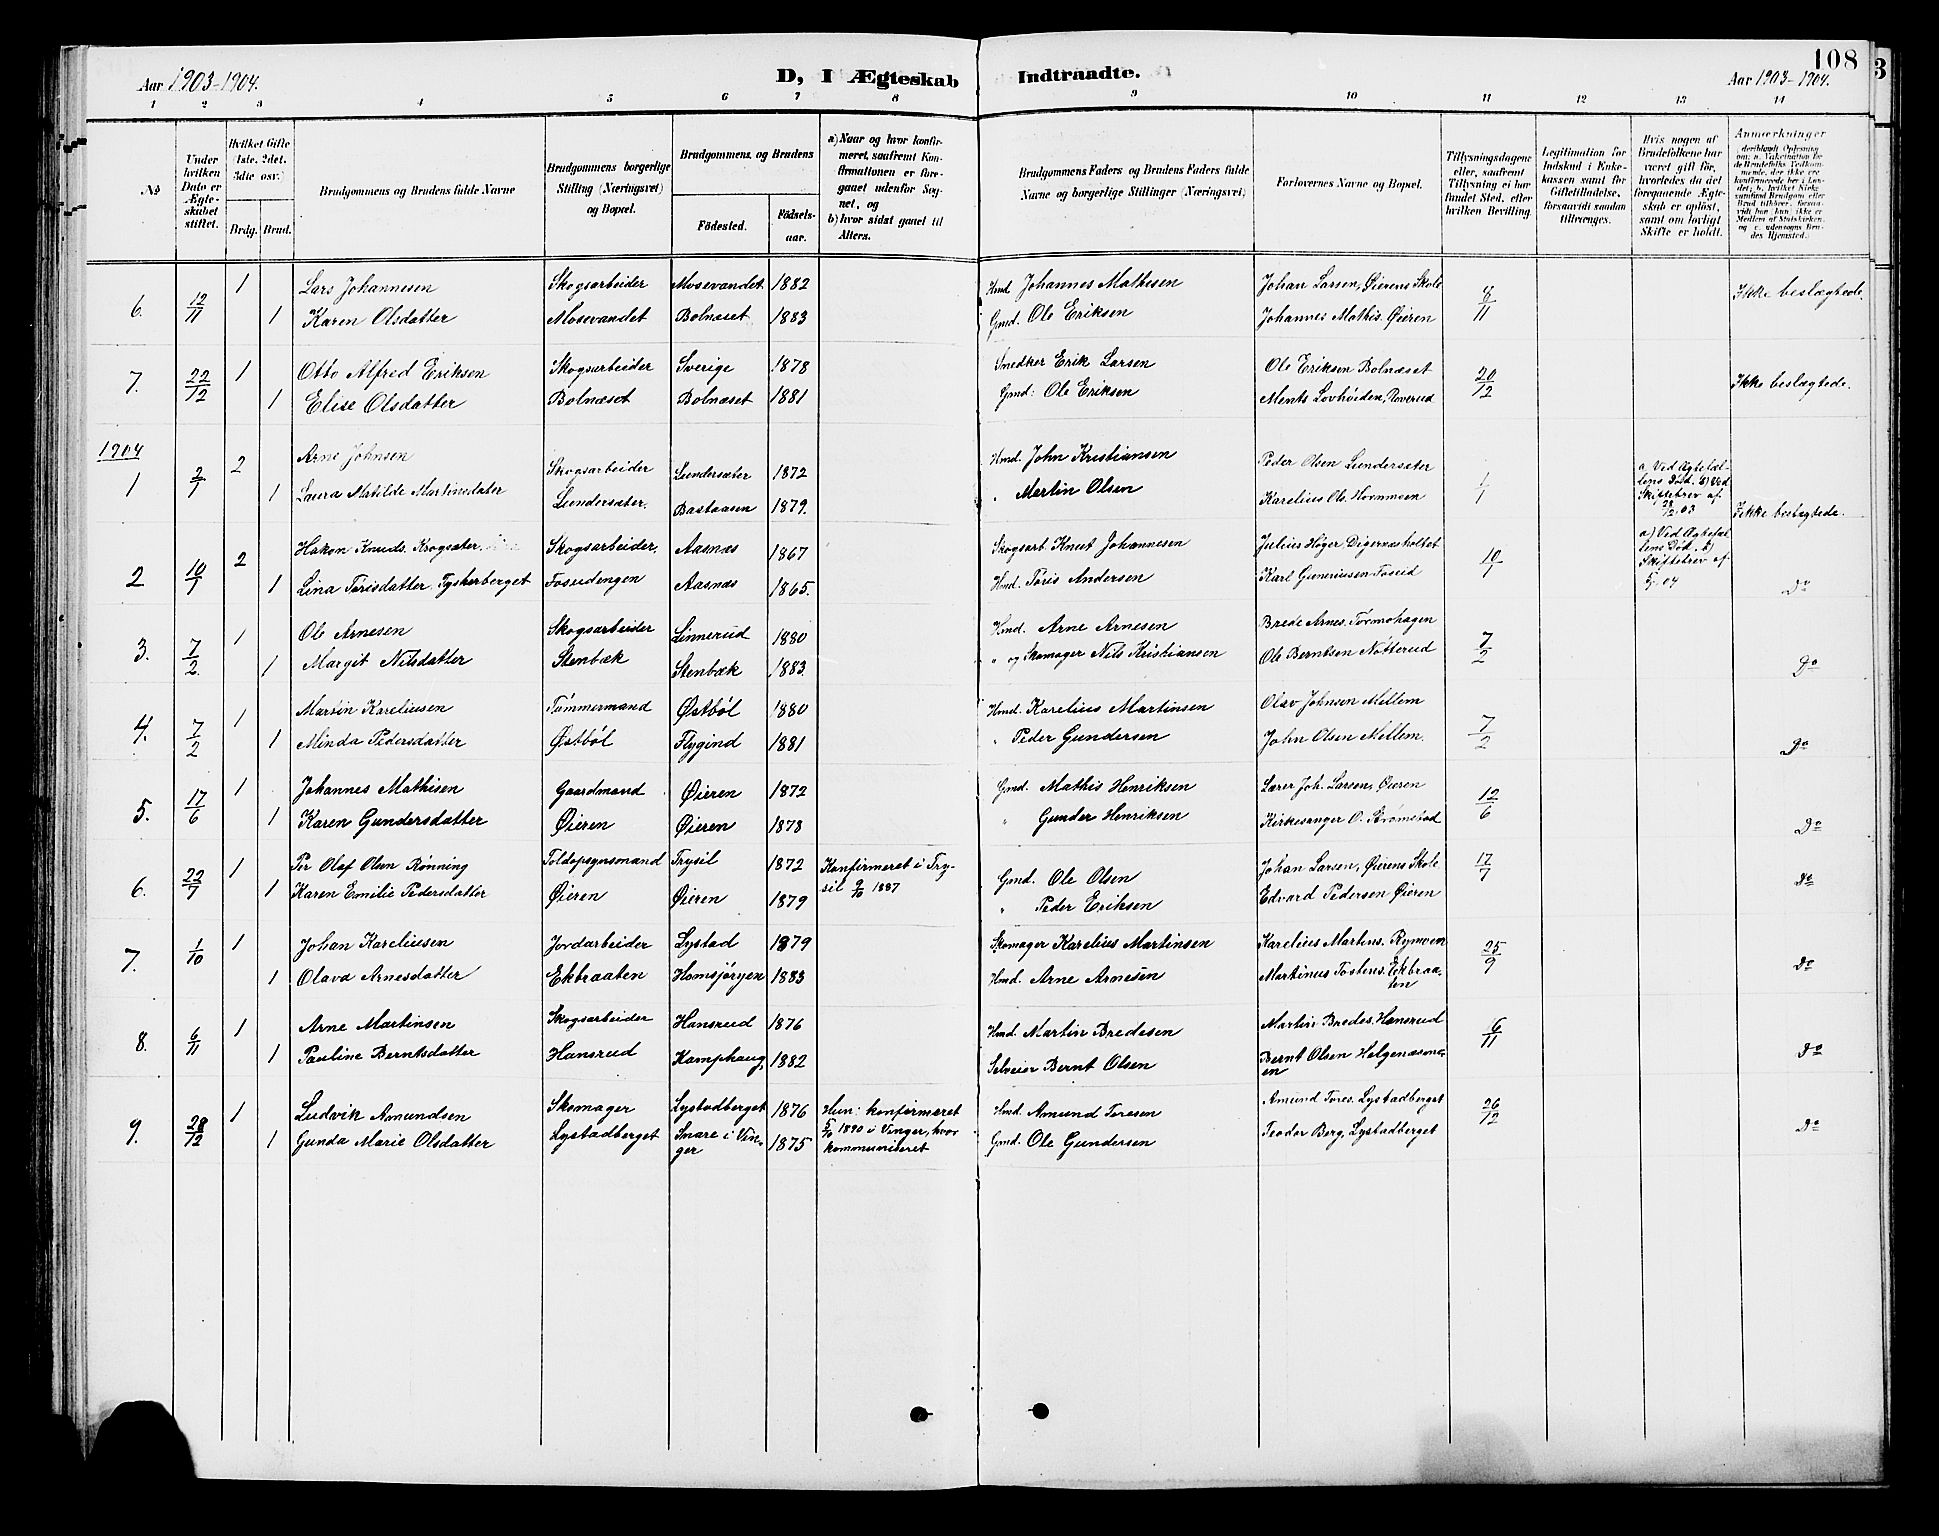 108
Aar 1903-1904.
D, I Ægteskab Indtraadte.
Aar 1903-1904.
1 2 3 4 5 6 7 8 9 10 11 12 13 14
No
Under hvilken Dato er Ægteskabet stiftet.
Hvilket Gifte (1ste, 2det, 3die osv.)
Brdg. Brud.
Brudgommens og Brudens fulde Navne
Brudgommens borgerlige Stilling (Næringsvei) og Bopæl.
Brudgommens og Brudens
Födested.
Födselsaar.
a) Naar og hvor konfirmeret, saafremt Konfirmationen er foregaaet udenfor Sognet, og
b) hvor sidst gaaet til Alters.
Brudgommens Faders og Brudens Faders fulde Navne og borgerlige Stillinger (Næringsvei)
Forlovernes Navne og Bopæl.
Tillysningsdagene eller, saafremt Tillysning ei har fundet Sted, efter hvilken Bevilling.
Legitimation for Indskud i Enkekassen samt for Giftetilladelse, forsaavidt saadan tiltrænges.
Hvis nogen af Brudefolkene har været gift før, hvorledes da det foregaaende Ægteskab er oplöst, samt om lovligt Skifte er holdt.
Anmærkninger
6. 12/11 1 Lars Johannesen Skogsarbeider Mosevandet 1882 Hmd Johannes Mathisen Johan Larsen, Øierens Skole 8/11 Ikke beslægtede.
1 Karen Olsdatter Mosevandet Bolnæset 1883 Gmd. Ole Eriksen Johannes Mathis. Øieren
7. 22/12 1 Otto Alfred Eriksen Skogsarbeider Sverige 1878 Snedker Erik Larsen Ole Eriksen Bolnæset 20/12 Ikke beslægtede.
1 Elise Olsdatter Bolnæset Bolnæset 1881 Gmd: Ole Eriksen Ments Lovhöiden, Roverud
1904
1 2/1 2 Arne Johnsen Skogsarbeider Lundersæter 1872 Hmd. John Kristiansen Peder Olsen Lundersæter 1/1 a. Ved Ægtefællens Död. b) Ved Skiftebrev af 28/2 03
1 Laura Matilde Martinsdater Lundersæter. Bastaasen 1879. " Martin Olsen Karelius Ols. Ikke beslægtede.
2 10/1 2 Hakon Knuds. Krogsæter. Skogsarbeider, Aasnæs 1867 Skogsarb. Knut Johannesen Julius Höger, Digernæsholtet 10/1 a) Ved Ægtefællens Död. b) Skiftebrev af 5/1 04
1 Lina Tørisdatter Tyskerberget Fosudengen Aasnæs 1865. Hmd. Tøris Andersen Karl Gunerius en Foseid Do
3. 7/2. 1 Ole Arnesen Skogsarbeider Linnerud 1880 Hmd. Arne Arnesen Brede Arnes. Tormohagen 7/2
1 Margit Nilsdatter Stenbæk Stenbæk 1883 " og Skomager Nils Kristiansen Ole Berntsen Nötterud Do
4. 7/2 1 Martin Kareliusen Tømmermand Østböl 1880 Hmd. Karelius Martinsen Olav Johnsen Mellem 7/2
1 Minda Pedersdatter Østböl Flygind 1881 " Peder Gundersen John Olsen Mellem. Do
5. 17/6 1 Johannes Mathisen Gaardmand Øieren 1872 Gmd. Mathis Henriksen Lærer Joh. Larsen, Øieren 12/6
1 Karen Gundersdatter Øieren Øieren 1878 " Gunder Henriksen Kirkesanger O. Strömstad Do
6. 22/7 1 Per Olaf Olsen Rönning Toldopsynsmand Trysil 1872 Konfirmeret i Trysil 9/10 1887 Gmd. Ole Olsen Johan Larsen, Øierens Skole 17/7
1 Karen Emilie Pedersdatter Øieren Øieren 1879 " Peder Eriksen Edvard Pedersen Øieren Do
7. 1/10 1 Johan Kareliusen Jordarbeider Lystad 1879 Skomager Karelius Martinsen Karelius Martins. Rymoen 25/9
1 Olava Arnesdatter Ekbraaten Homsjøryen 1883 Hmd. Arne Arnesen Martinus Tostens. Ekbraaten Do
8. 6/11 1 Arne Martinsen Skogsarbeider Hansrud 1876 Hmd. Martin Bredesen Martin Bredes. Hansrud 6/11
1 Pauline Berntsdatter Hansrud Kamphaug, 1882 Selveier Bernt Olsen Bernt Olsen Do
9. 28/12 1 Ludvik Amundsen Skomager Lystadberget 1876 Hun: konfirmeret 5/10 1890 i Vinger, hvor kommuniseret Hmd. Amund Toresen Amund Tores. Lystadberget 26/12
1 Gunda Marie Olsdatter Lystadberget Snare i Vinger 1875 Gmd. Ole Gundersen Teodor Berg, Lystadberget Do